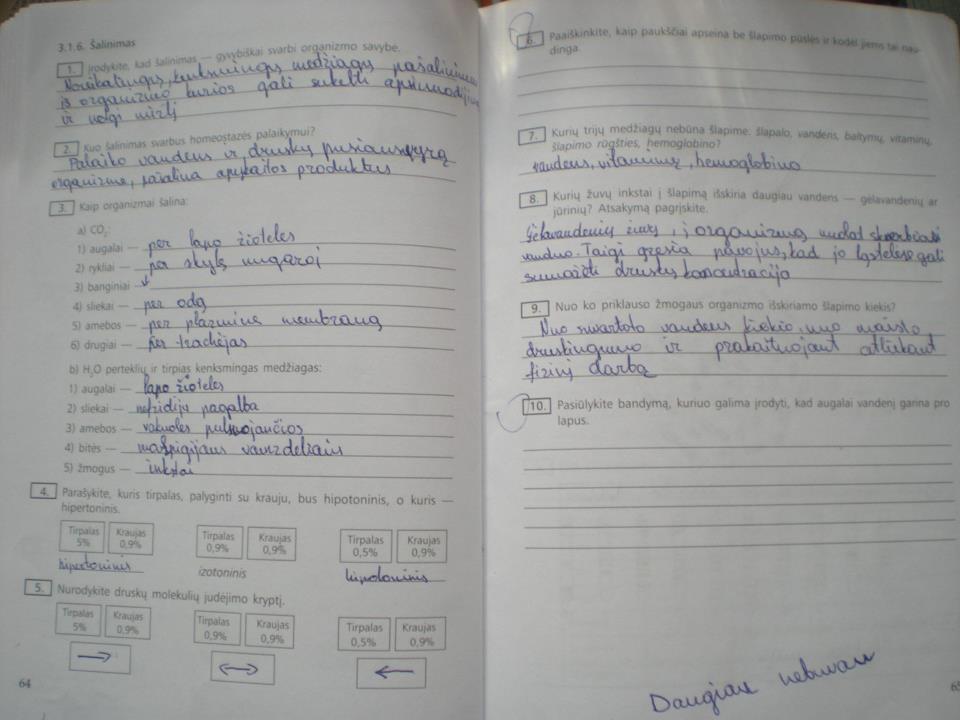 3.1.6. Šalinimas
1. Įrodykite, kad šalinimas — gyvybiškai svarbi organizmo savybė.
Nereikalingų, kenksmingų medžiagų pašalinimas
iš organizmo kurios gali sukelti apsinuodijimą
ir netgi mirtį
2. Kuo šalinimas svarbus homeostazės palaikymui?
Palaiko vandens ir druskų pusiausvyrą
organizme, pašalina apykaitos produktus
3. Kaip organizmai šalina:
a) CO₂:
1) augalai — per lapo žioteles
2) rykliai — per skylę nugaroj
3) banginiai — ↓
4) sliekai — per odą
5) amebos — per plazminę membraną
6) drugiai — per trachėjas
b) H₂O perteklių ir tirpias kenksmingas medžiagas:
1) augalai — lapo žioteles
2) sliekai — nefridijų pagalba
3) amebos — vakuoles pulsuojančios
4) bitės — malpigijaus vamzdeliais
5) žmogus — inkstai
4. Parašykite, kuris tirpalas, palyginti su krauju, bus hipotoninis, o kuris —
hipertoninis.
Tirpalas 5% Kraujas 0,9% Tirpalas 0,9% Kraujas 0,9% Tirpalas 0,5% Kraujas 0,9%
hipertoninis izotoninis hipotoninis
5. Nurodykite druskų molekulių judėjimo kryptį.
Tirpalas 5% Kraujas 0,9% Tirpalas 0,9% Kraujas 0,9% Tirpalas 0,5% Kraujas 0,9%
→ ↔ ←
64
6. Paaiškinkite, kaip paukščiai apseina be šlapimo pūslės ir kodėl jiems tai nau-
dinga.
7. Kurių trijų medžiagų nebūna šlapime: šlapalo, vandens, baltymų, vitaminų,
šlapimo rūgšties, hemoglobino?
vandens, vitaminų, hemoglobino
8. Kurių žuvų inkstai į šlapimą išskiria daugiau vandens — gėlavandenių ar
jūrinių? Atsakymą pagrįskite.
Gėlavandenių žuvų, į organizmą nuolat skverbiasi
vanduo. Taigi gresia pavojus, kad jo ląstelėse gali
sumažėti druskų koncentracija
9. Nuo ko priklauso žmogaus organizmo išskiriamo šlapimo kiekis?
Nuo suvartoto vandens kiekio, nuo maisto
druskingumo ir prakaituojant atliekant
fizinį darbą
10. Pasiūlykite bandymą, kuriuo galima įrodyti, kad augalai vandenį garina pro
lapus.
Daugiau nebuvau
65